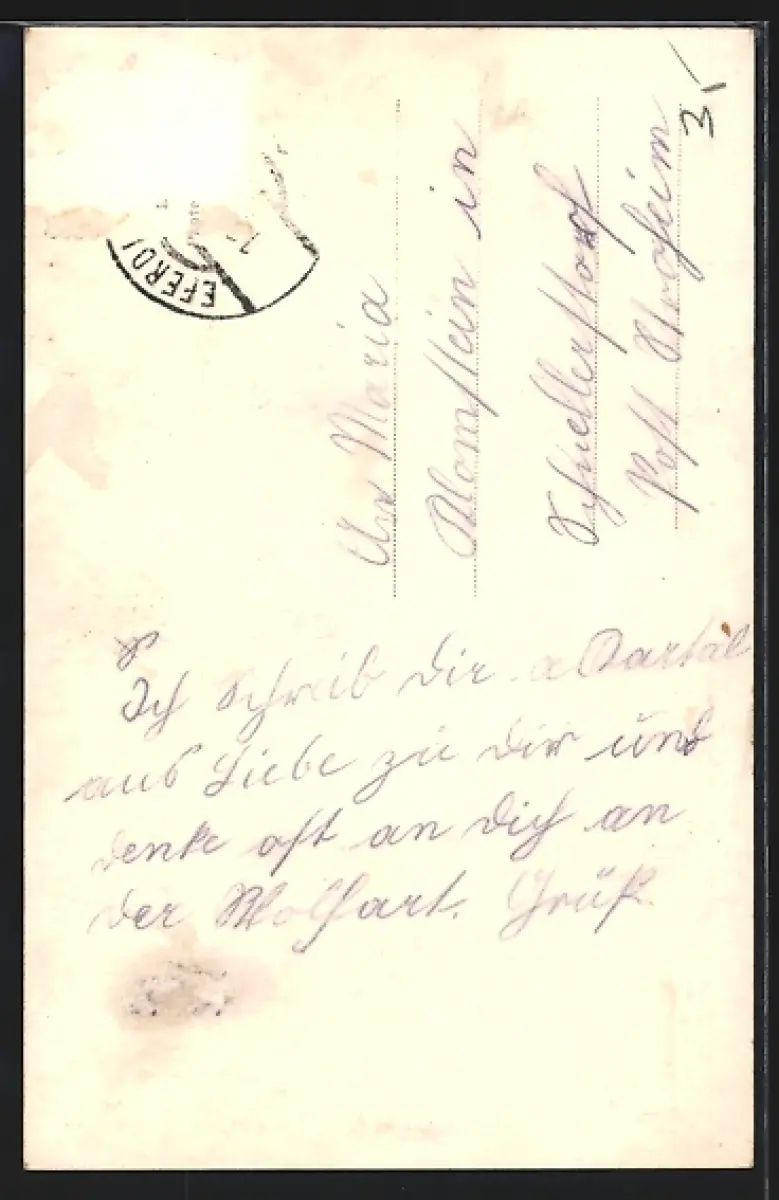 EFERDI
3,
An Maria
in
Post Stroheim
Ich schreib dir a Kartal
aus Liebe zu dir und
denke oft an dich an
der Wolfart. Grüß